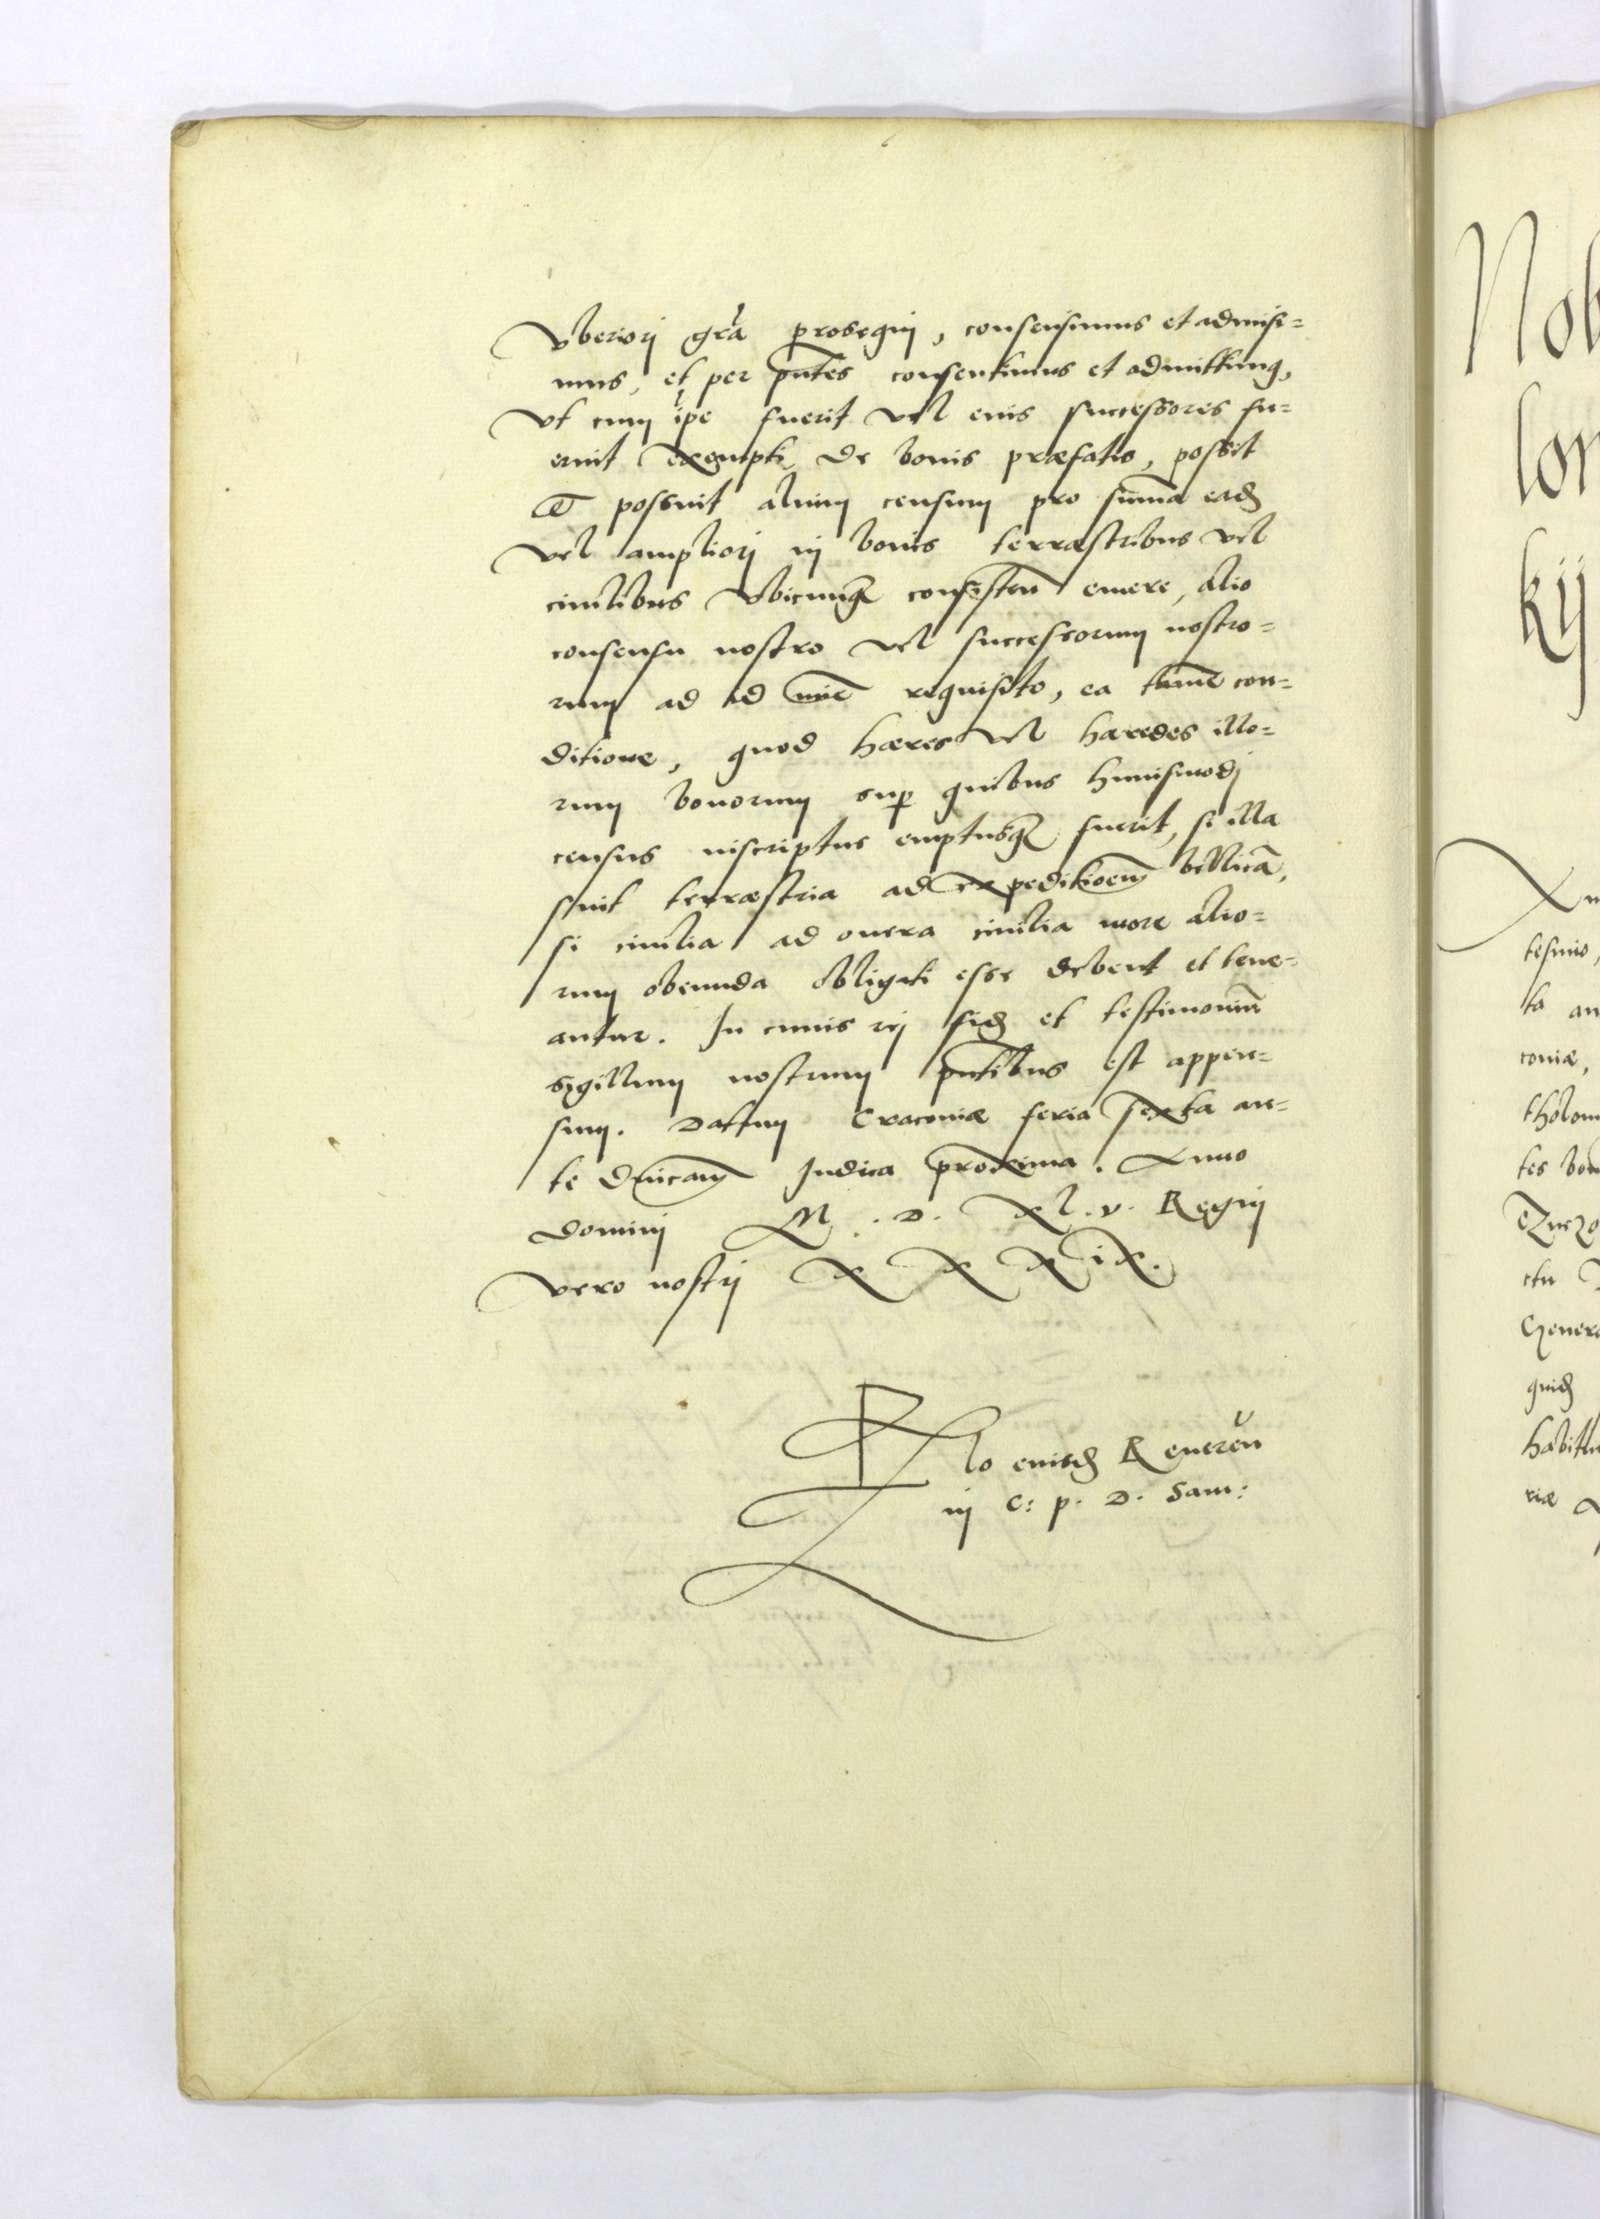 Vberiori gr̃a prosequi, consensimus et admisi=
mus, et per pñtes consentimus et admittimꝰ,
Vt cum ip̃e fuerit vel eius successores fu=
erint exempti de bonis præfatis, possit
et possint alium censum pro sum̃a eadẽ
vel ampliori in bonis terræstribus vel
ciuilibus vbicunqꝫ consisteñ emere, alio
consensu nostro vel successorum nostro=
rum ad id mĩe requisito, ea tam̃e con=
ditione, quod hæres vel hæredes illo=
rum bonorum sup̱ quibus huiusmodj
census inscriptus emptusqꝫ fuerit, si illa
sint terræstria ad expeditioem̃ bellicã,
si ciuilia ad onera ciuilia more alio=
rum obeunda obligati esse debent et tene=
antur. In cuius rej fidẽ et testimoniũ
sigillum nostrum pñtibus est appen=
sum. Datum Cracouiæ feria sexta an=
te Dñicam̃ Iudica proxima. Anno
Domini M . D . XL . V . Regni
Vero nostrj X X X i X.
Rlo eiusdẽ Reuereñ
in C: p. D. Sam:
Nob
lor
kij
tesimo,
ta an
coniæ,
tholom
tes bon
ctu
Genera
quidẽ
habitu
riæ